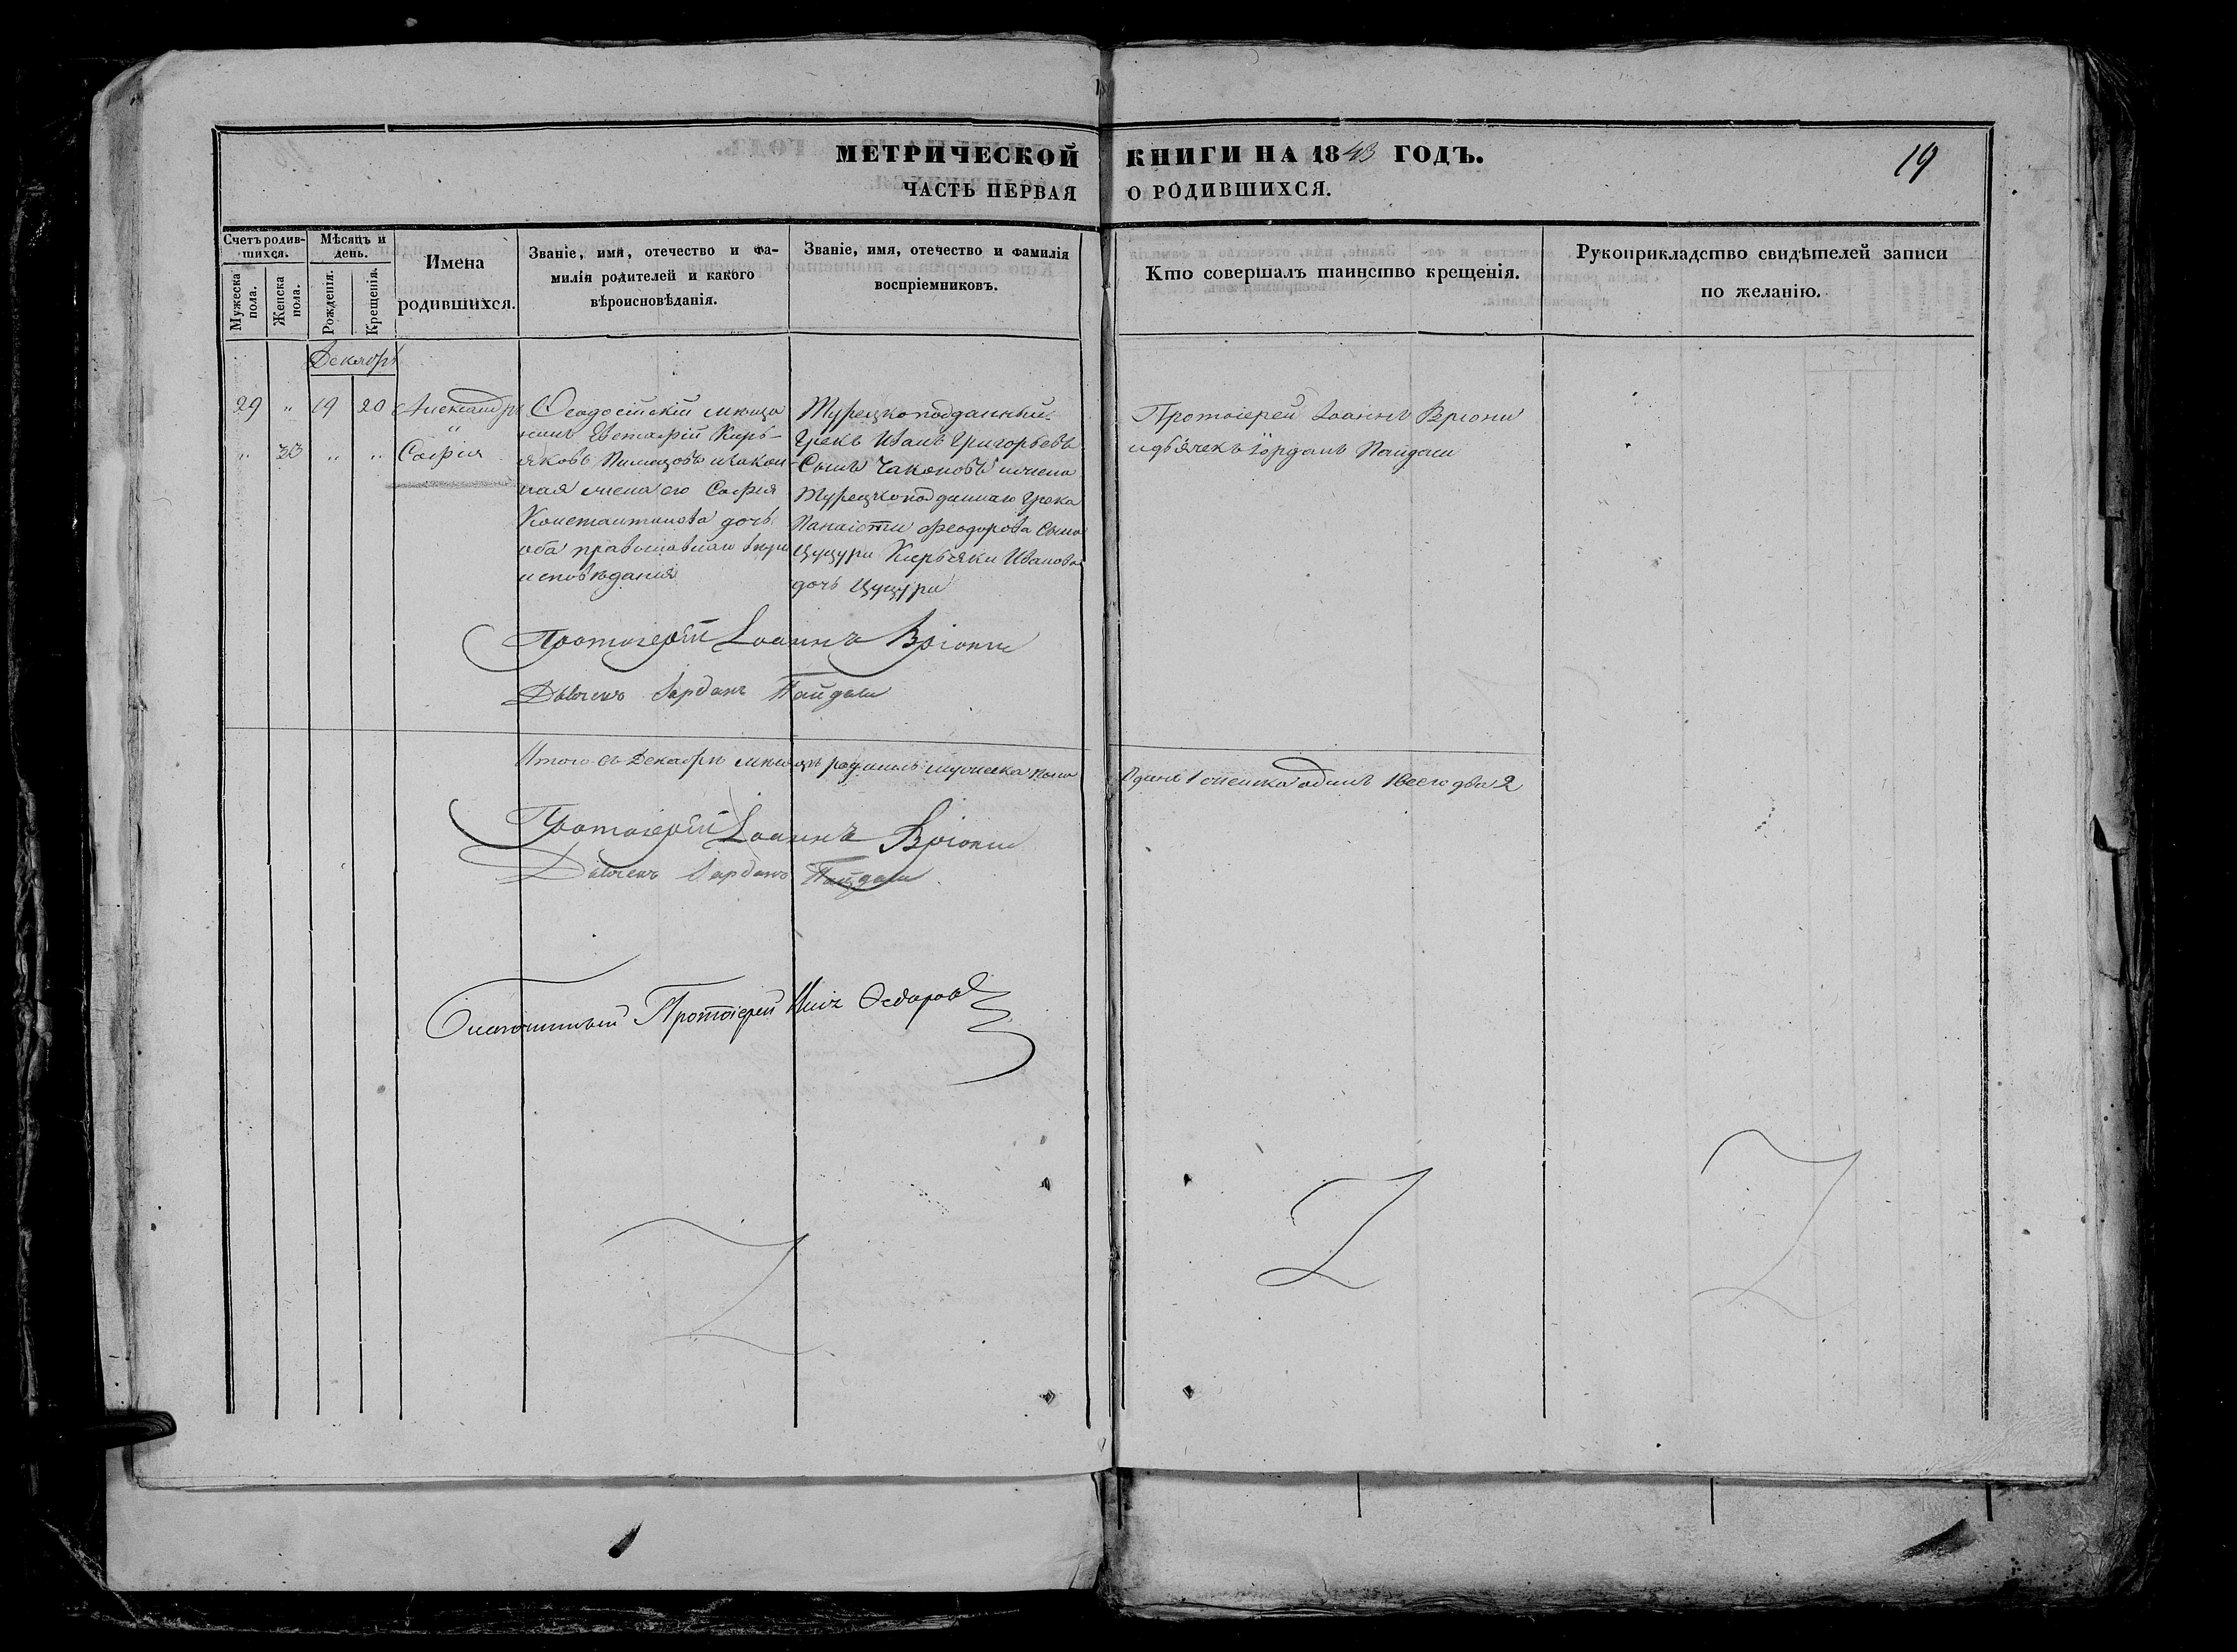 МЕТРИЧЕСКОЙ КНИГИ НА 1843 ГОДЪ.
19
ЧАСТЬ ПЕРВАЯ О РОДИВШИХСЯ.
Счетъ родив-
шихся.
Мужеска
пола.
Женска
пола.
Мѣсяцъ и
день.
Рожденія.
Крещенія.
Имена
родившихся.
Званіе, имя, отечество и фа-
милія родителей и какого
вѣроисновѣданія.
Званіе, имя, отечество и фамилія
воспріемниковъ.
Кто совершалъ таинство крещенія.
Рукоприкладство свидѣтелей записи
по желанію.
Декабрь
29 " 19 20 Александръ
"
" 33 " " Софія
Феодосійскій мѣща
нинъ Евстафій Кирь-
яковъ и закон-
ная жена его Софія
Константинова дочь
оба православнаго вѣро
исповѣданія
Турецкоподданный
Грекъ Иванъ Григорьевъ
Сынъ Чакоповъ и жена
Турецкоподданнаго Грека
Панаіоти Феодорова Сына
Цуцури Кирьяки Иванова
дочь Цуцури
Протоіерей Іоаннъ Вріони
и дьячекъ Іорданъ Пайдаси
Протоіерей Іоаннъ Вріони
Дьячекъ Іорданъ Пайдаси
Итого въ Декабрѣ мѣсяцѣ родилось мужеска пола
Одинъ 1 женска одинъ 1 всего два 2
Протоіерей Іоаннъ Вріони
Дьячекъ Іорданъ Пайдаси
Благочинный Протоіерей